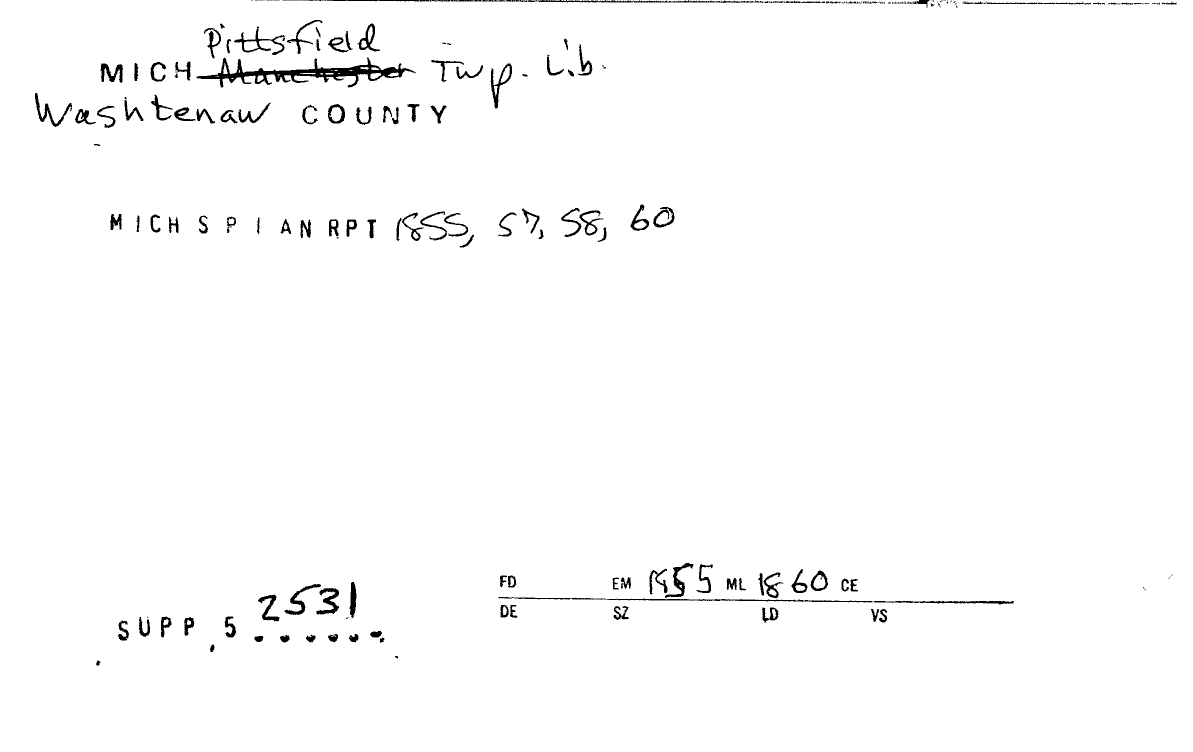 Pittsfield
MICH Manchester Twp. Lib.
Washtenaw COUNTY
MICH S P I AN RPT 1855, 57, 58, 60
FD EM 1855 ML 1860 CE
DE SZ LD VS
2531
SUPP, 5 ......